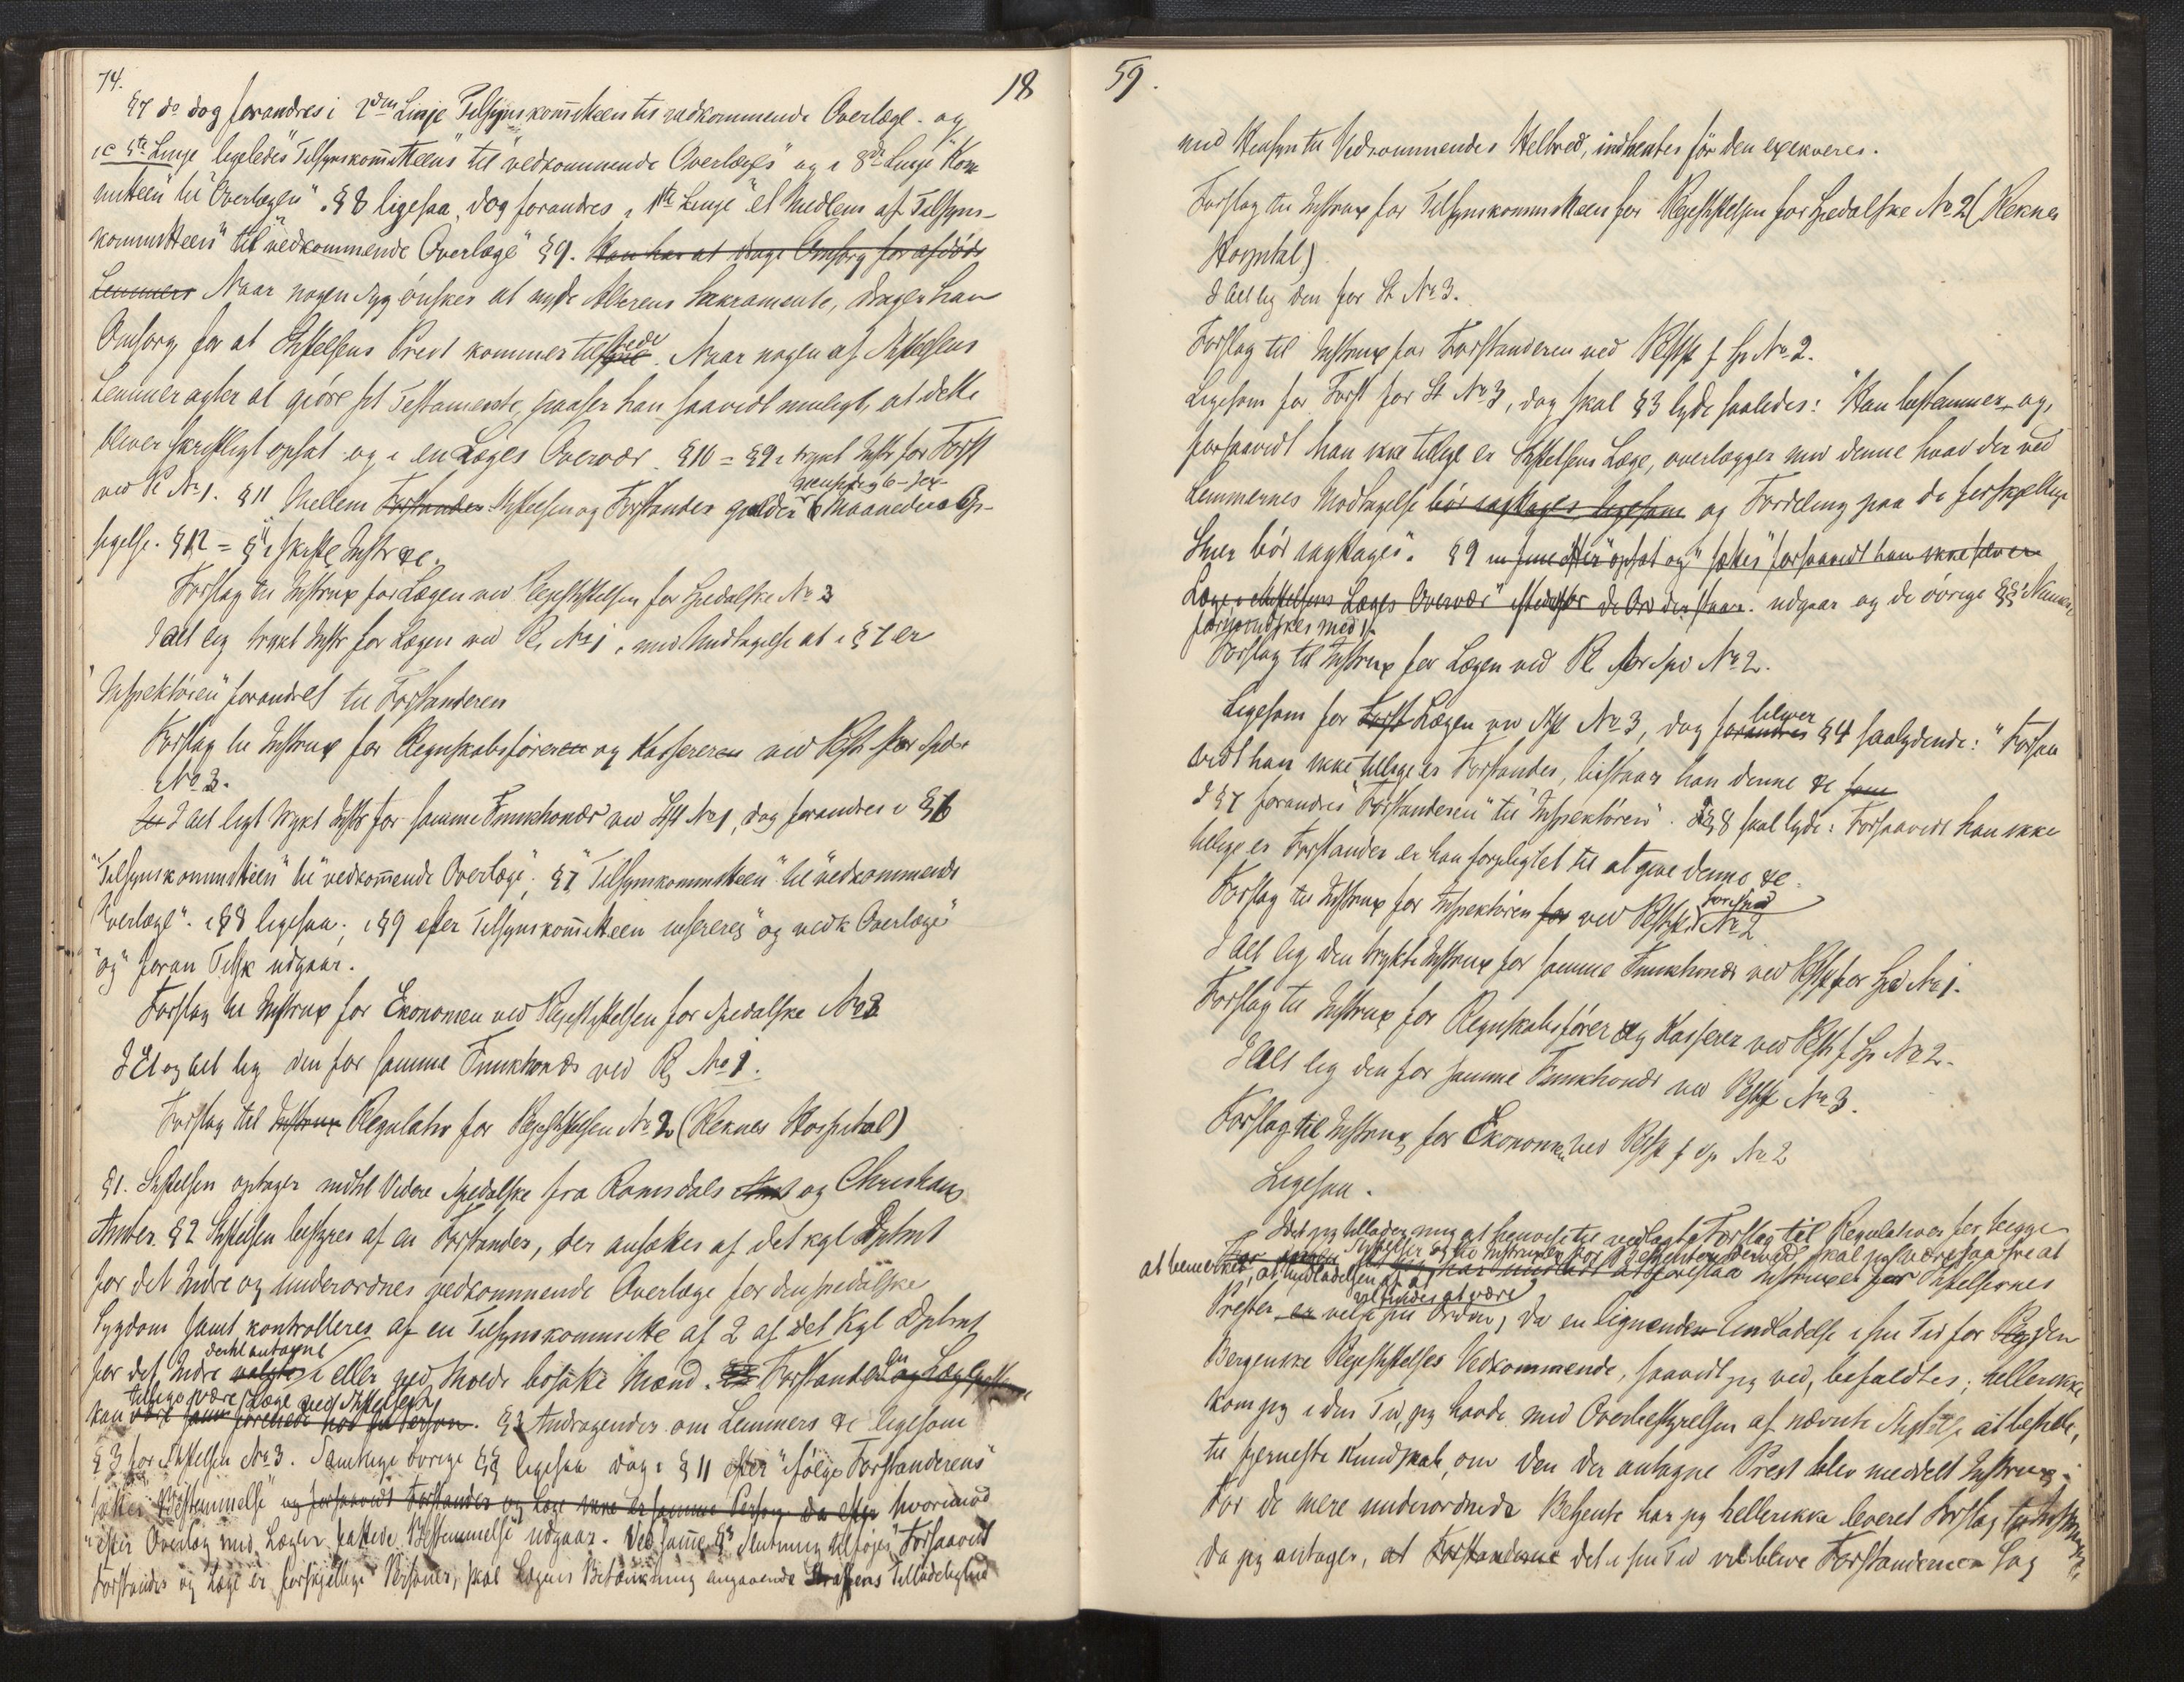 74.
18
§7 do dog forandres i 2den Linje Tilsynskomitteen til vedkommende Overlæge - og
i 6te Linje ligeledes "Tilsynskomitteens" til "vedkommende Overlæges" og i 8de Linje "Kom
mitteen" til "Overlægen". §8 ligesaa, dog forandres i 1ste Linje "et Medlem af Tilsyns-
kommitteen" til "vedkommende Overlæge" §9. Han har at drage Omsorg for afdöde
Lemmers Naar nogen Syg önsker at nyde Alterens Sakramente, drager han
Omsorg for at Stiftelsens Prest kommer tilstede. Naar nogen af Stiftelsens
Lemmer agter at gjöre sit Testamente, paaser han saavidt muligt, at dette
bliver skriftligt opsat og i en Læges Overvær. §10 = §9 i trykt Instr for Forst
ved Pl No 1. §11 Mellem Forstander Stiftelsen og Forstander gjælder 6 Maaneders Op-
sigelse. §12 = § i skrftl Instr &c.
Forslag til Instrux for Lægen ved Plejestiftelsen for Spedalske No 3
I alt lig trykt Instr for Lægen ved Pl. No 1, med Undtagelse at i §7 er
"Inspektören" forandret til Forstanderen
Forslag til Instrux for Regnskabsföreren og Kassereren ved Plst for Sped.
No 3.
I alt ligt trykt Instr for samme Funktionær ved Stft No 1, dog forandres i §6
"Tilsynskommitteen" til "vedkommende Overlæge". §7 "Tilsynskommitteen" til "vedkommende
Overlæge". i §8 ligesaa; i §9 efter Tilsynskomitteen insereres "og vedk Overlæge"
"og" foran Tilsk udgaar.
Forslag til Instrux for Ekonomen ved Plejestiftelsen for Spedalske No 3
I Et og alt lig den for samme Funktionær ved Pl No 1.
Forslag til Instrux Regulativ for Plejestiftelsen No 2 (Reknes Hospital)
§1. Stiftelsen optager indtil Videre Spedalske fra Romsdals Amt og Christians
Amter. §2 Stiftelsen bestyres af en Forstander, der ansættes af det kgl Dptmt
for det Indre og underordnes vedkommende Overlæge for den spedalske
Sygdom samt kontrolleres af en Tilsynskommitte af 2 af det Kgl Dptmt
dertil antagne
for det Indre valgte i eller ved Molde bosatte Mænd. Forstanderen og Læge
tillige være Læge ved Stiftelsen
kan være samt forenede hos en Person. §3 Andragender om Lemmers &c ligesom
§3 for Stiftelsen No 3. Samtlige övrige §§ ligesaa dog i §11 efter "ifölge Forstanderens"
sættes "Bestemmelse" og forsaavidt Forstander og Læge ikke er samme Person da efter hvorimod
"efter Overlæg med Lægen fattede Bestemmelse" udgaar. Ved samme §s Slutning tilföjes "Forsaavidt
Forstander og Læge er forskjellige Personer, skal Lægens Betænkning angaaende Straffens Tilladelighed
59.
med Hensyn til Vedkommendes Helbred, indhentes för den exekveres.
Forslag til Instrux for Tilsynskommitteen for Plejestiftelsen for Spedalske No 2 (Reknes
Hospital)
I alt lig den for St No 3.
Forslag til Instrux for Forstanderen ved Plstft f Sp No 2.
Ligesom for Forst for St No 3, dog skal §3 lyde saaledes: "Han bestemmer, og,
forsaavidt han ikke tillige er Stiftelsens Læge, overlægger med denne hvad der ved
Lemmernes Modtagelse bör iagttages ligesom og Fordeling paa de forskjellige
Stuer bör iagttages". §9 efter "opsat og" sættes "forsaavidt han ikke selv er
Læge i Stiftelsens Læges Overvær" istedetfor de Ord der staar. udgaar og de övrige §§
formindskes med 1.
Forslag til Instrux for Lægen ved Pl for Sp No 2.
Ligesom for Forst Lægen ved Stft No 3, dog forandres bliver §4 saalydende: "Forsaa
vidt han ikke tillige er Forstander, bistaar han denne &c
I §7 forandres "Forstanderen" til "Inspektören". §8 skal lyde: Forsaavidt han ikke
tillige er Forstander er han forpligtet til at give denne &c.
Forslag til Instrux for Inspektören for ved Plstft for Sped No 2
I alt lig den trykte Instrux for samme Funktionær ved Plstft for Sped No 1.
Forslag til Instrux for Regnskabsförer og Kasserer ved Plst f Sp No 2.
I alt lig den for samme Funktionær ved Plstft No 3.
Forslag til Instrux for Ekonomen ved Plstft f Sp No 2
Ligesaa.
Idet jeg tillader mig at henvise til vedlagte Forslag til Regulativer for begge
Stiftelser og til Instruxer for Betjenten derved skal jeg være saa fri at
at bemærke, at Undladelsen af at foreslaa Instruxer for Stiftelsernes
vel findes at være
Prester er velf i sin Orden, da en lignende Undladelse i sin Tid for den
Bergenske Plejestiftelses Vedkommende, saavidt jeg ved, befaldtes; hellerikke
kom jeg i den Tid, jeg havde med Overbestyrelsen af nævnte Stiftelse at bestille,
til fjerneste Kundskab, om den der antagne Prest blev meddelt Instrux.
For de mere underordnede Betjente har jeg hellerikke leveret Forslag til Instruxer,
da jeg antager, at Forstanderne det i sin Tid vil blive Forstanderen Sag